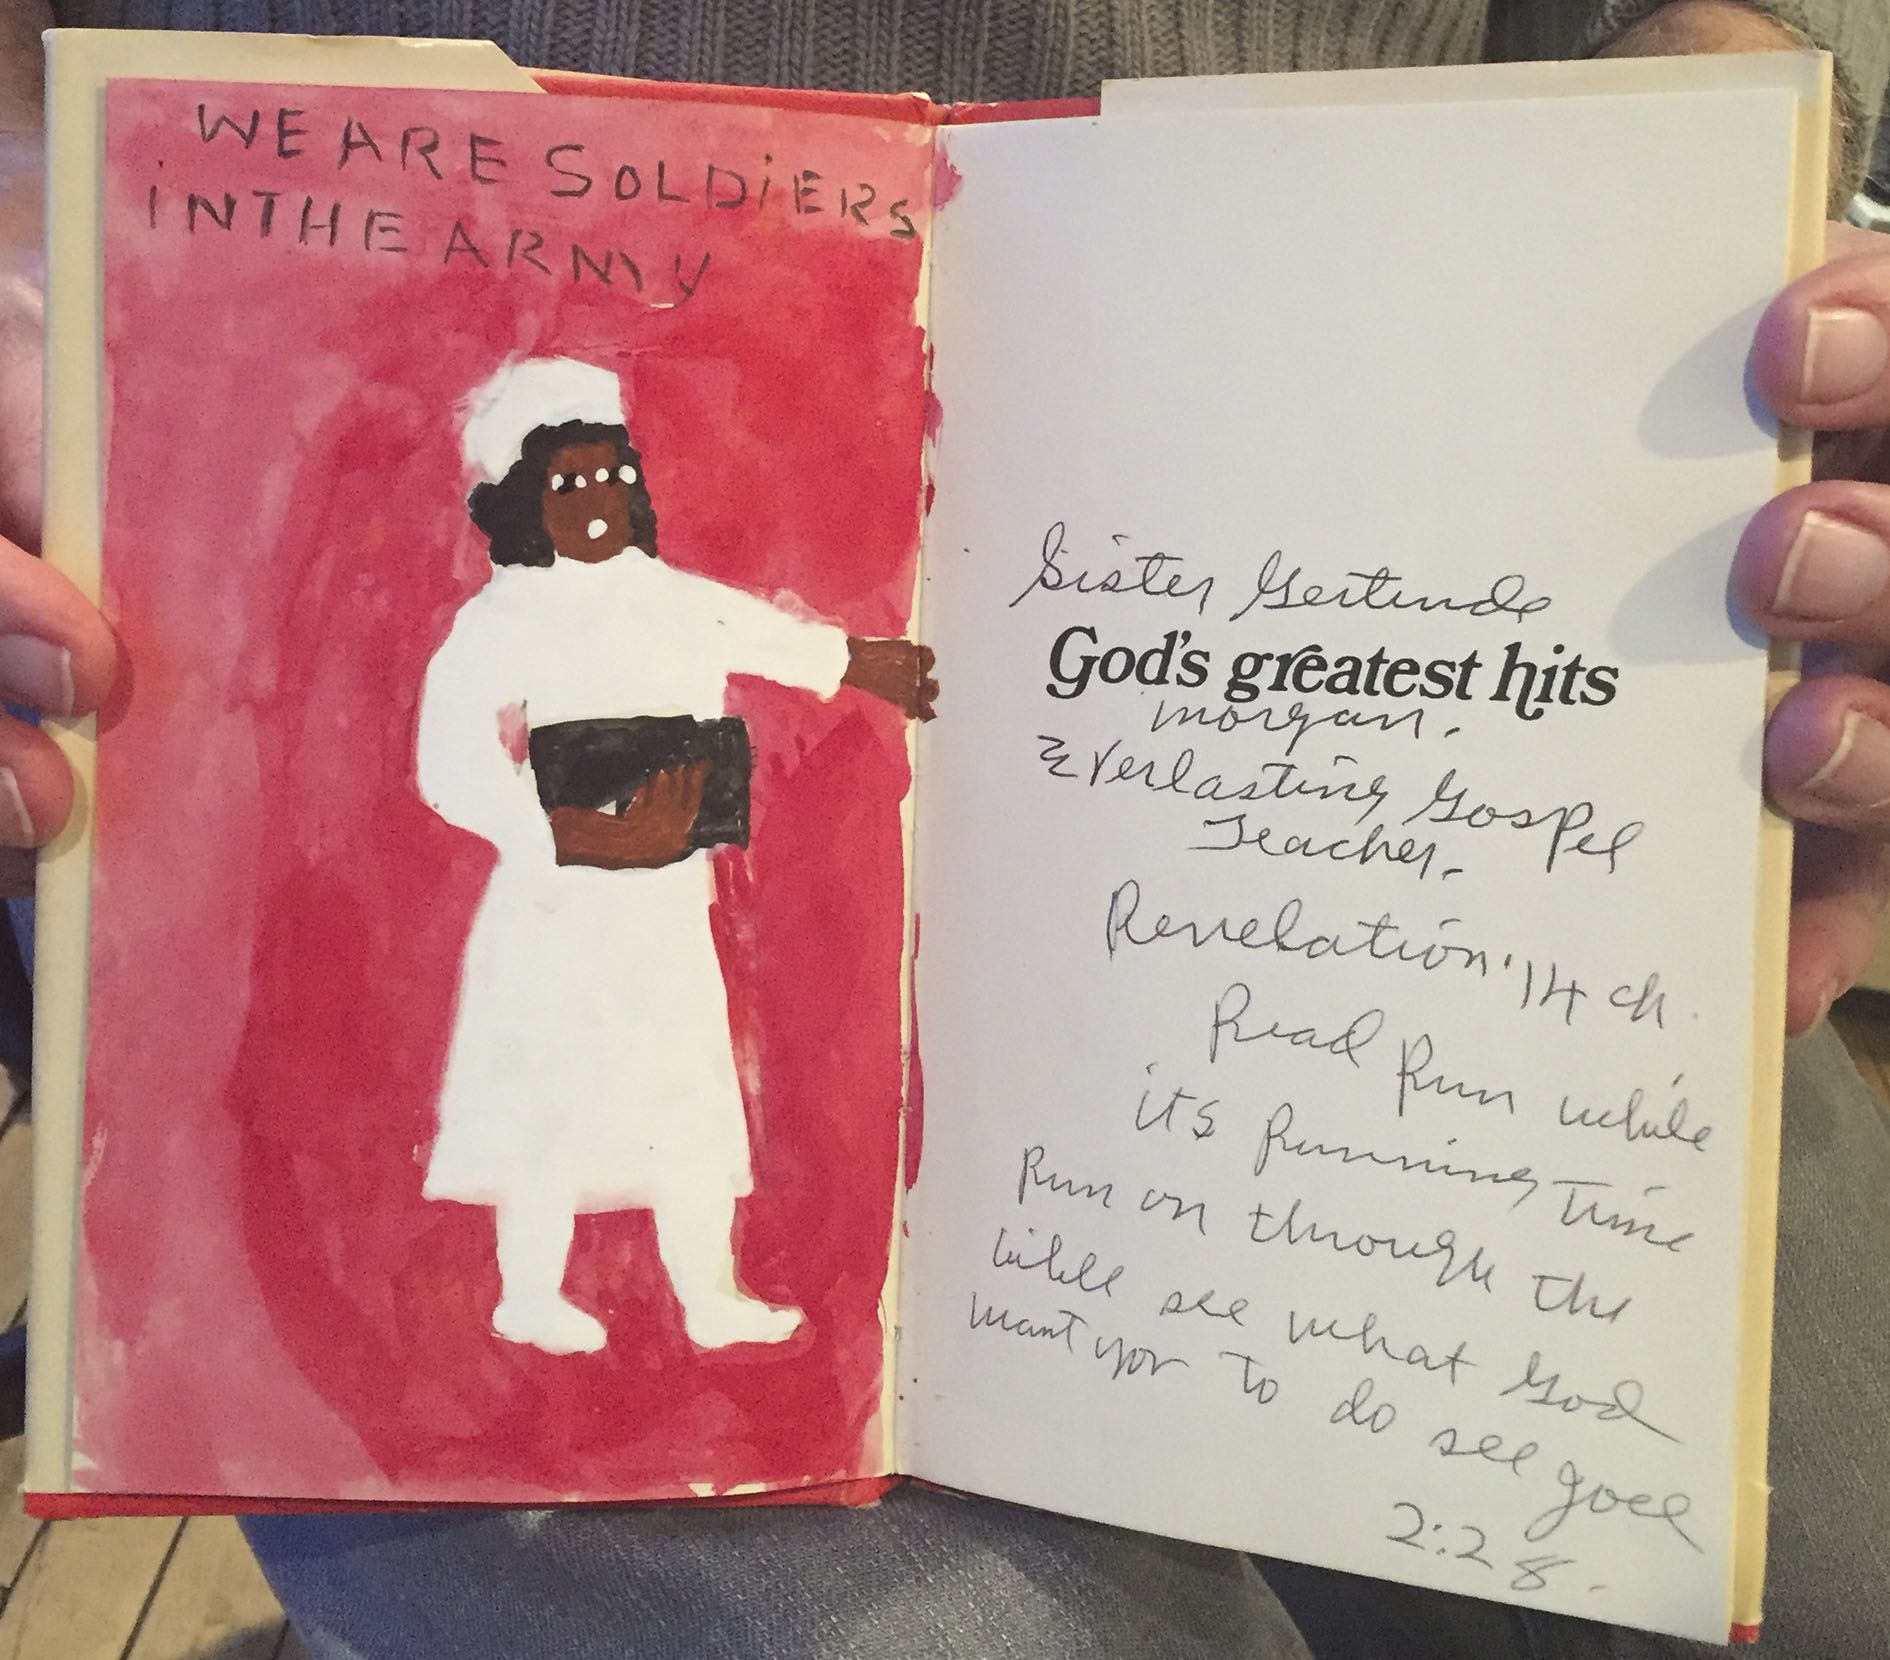 WE ARE SOLDiERS
iN THE ARMY
Sister Gertrude
God's greatest hits
morgan.
Everlasting Gospel
Teacher.
Revelation. 14 ch.
Read Run while
its Running Time
Run on through the
bible see what God
want you to do see Joel
2:28.